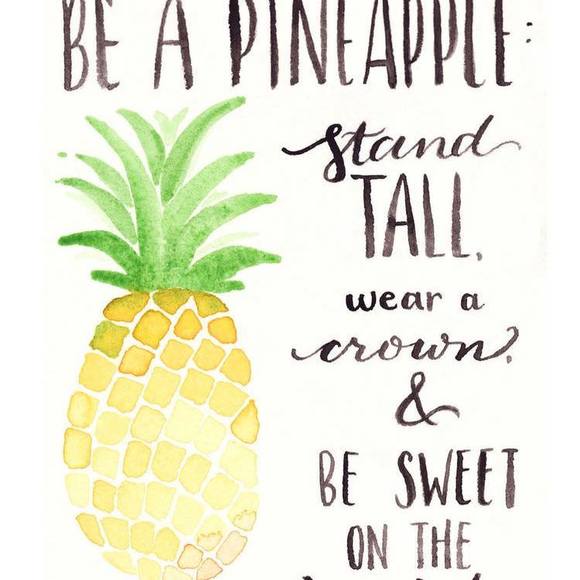 BE A PINEAPPLE:
stand
TALL,
wear a
crown,
&
BE SWEET
ON THE